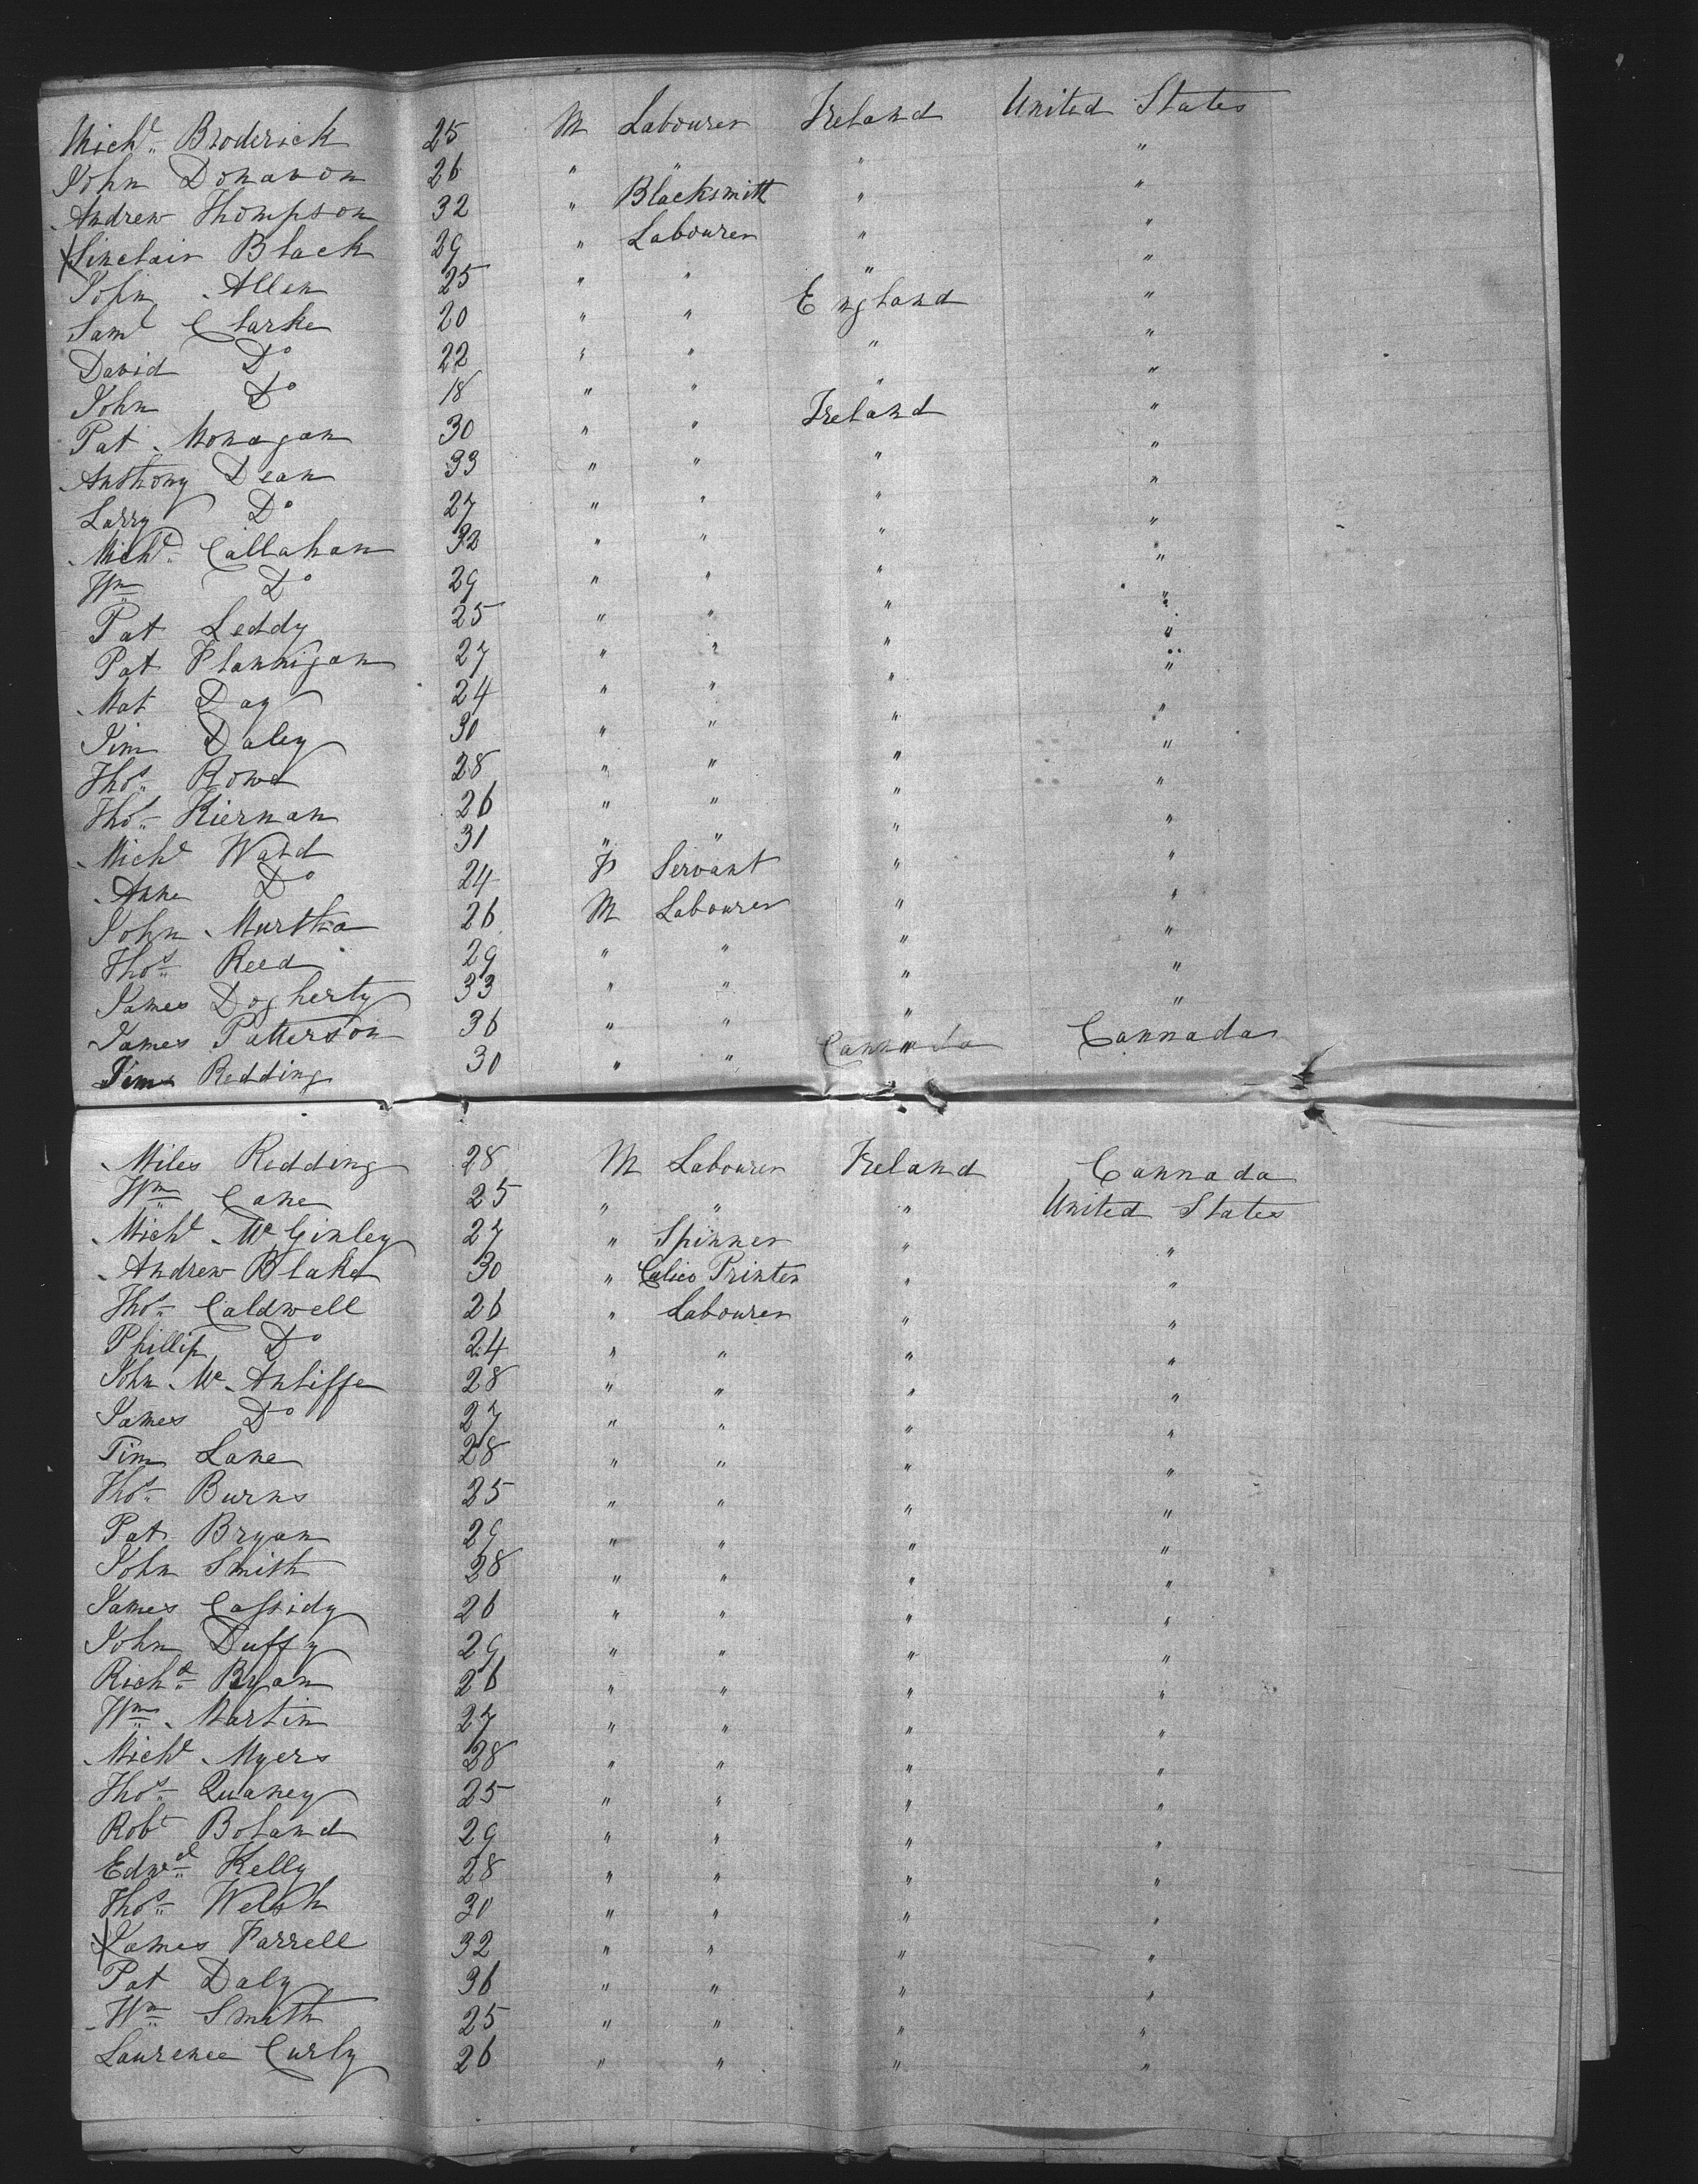 Michl Broderick 25 M Labourer Ireland United States
John Donavon 26 " " " "
Andrew Thompson 32 " Blacksmith " "
Sinclair Black 29 " Labourer " "
John Allen 25 " " " "
Saml Clarke 20 " " England "
David Do 22 " " " "
John Do 18 " " " "
Pat Monagan 30 " " Ireland "
Anthony Dean 33 " " " "
Larry Do 27 " " " "
Michl Callahan 32 " " " "
Wm Do 29 " " " "
Pat Leddy 25 " " " "
Pat Flannigan 27 " " " "
Mat Day 24 " " " "
Jim Daley 30 " " " "
Thos Rowe 28 " " " "
Thos Kiernan 26 " " " "
Michl Ward 31 " " " "
Anne Do 24 F Servant " "
John Murtha 26 M Labourer " "
Thos Reed 29 " " " "
James Dogherty 33 " " " "
James Patterson 36 " " " "
Redding 30 " " Cannada Cannada
Miles Redding 28 M Labourer Ireland Cannada
Wm Cane 25 " " " United States
Michl McGinley 27 " Spinner " "
Andrew Blake 30 " Calico Printer " "
Thos Caldwell 26 " Labourer " "
Phillip Do 24 " " " "
John McAnliffe 28 " " " "
James Do 27 " " " "
Tim Lane 28 " " " "
Thos Burns 25 " " " "
Pat Bryan 29 " " " "
John Smith 28 " " " "
James Cassidy 26 " " " "
John Duffy 29 " " " "
Richd Bryan 26 " " " "
Wm Martin 27 " " " "
Michl Myers 28 " " " "
Thos Quaney 25 " " " "
Robt Boland 29 " " " "
Edwd Kelly 28 " " " "
Thos Welsh 30 " " " "
James Farrell 32 " " " "
Pat Daly 36 " " " "
Wm Smith 25 " " " "
Laurence Curly 26 " " " "